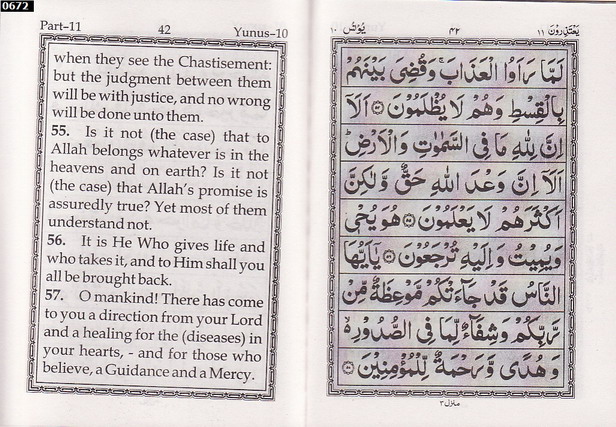 0672
Part-11 42 Yunus-10
when they see the Chastisement:
but the judgment between them
will be with justice, and no wrong
will be done unto them.
55. Is it not (the case) that to
Allah belongs whatever is in the
heavens and on earth? Is it not
(the case) that Allah's promise is
assuredly true? Yet most of them
understand not.
56. It is He Who gives life and
who takes it, and to Him shall you
all be brought back.
57. O mankind! There has come
to you a direction from your Lord
and a healing for the (diseases) in
your hearts, - and for those who
believe, a Guidance and a Mercy.
يَعْتَذِرُوْنَ ١١ ٤٢ يُوْنُس ١٠
لَمَّا رَاَوُا الْعَذَابَ ۚ وَقُضِيَ بَيْنَهُمْ
بِالْقِسْطِ وَهُمْ لَا يُظْلَمُوْنَ ۝٥٤ اَلَآ
اِنَّ لِلّٰهِ مَا فِي السَّمٰوٰتِ وَالْاَرْضِ ؕ
اَلَآ اِنَّ وَعْدَ اللّٰهِ حَقٌّ وَّلٰكِنَّ
اَكْثَرَهُمْ لَا يَعْلَمُوْنَ ۝٥٥ هُوَ يُحْيٖ
وَيُمِيْتُ وَاِلَيْهِ تُرْجَعُوْنَ ۝٥٦ يٰٓاَيُّهَا
النَّاسُ قَدْ جَآءَتْكُمْ مَّوْعِظَةٌ مِّنْ
رَّبِّكُمْ وَشِفَآءٌ لِّمَا فِي الصُّدُوْرِ ۙ
وَهُدًى وَّرَحْمَةٌ لِّلْمُؤْمِنِيْنَ ۝٥٧
منزل ٣